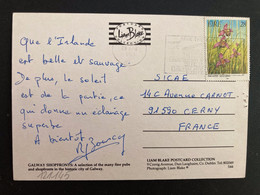 Liam Blake
ÉIRE 28
Que l'Irlande
est belle et sauvage.
De plus, le soleil
est de la partie, ce
qui donne un éclairage
superbe
A bientôt
SICAE
14 C Avenue CARNOT
91590 CERNY
FRANCE
GALWAY SHOPFRONTS: A selection of the many fine pubs
and shopfronts in the historic city of Galway.
LIAM BLAKE POSTCARD COLLECTION
Photograph: Liam Blake